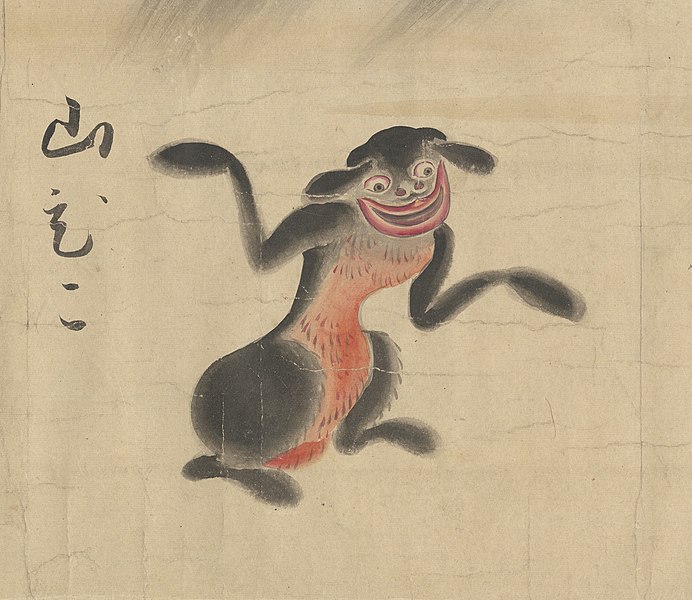 山びこ